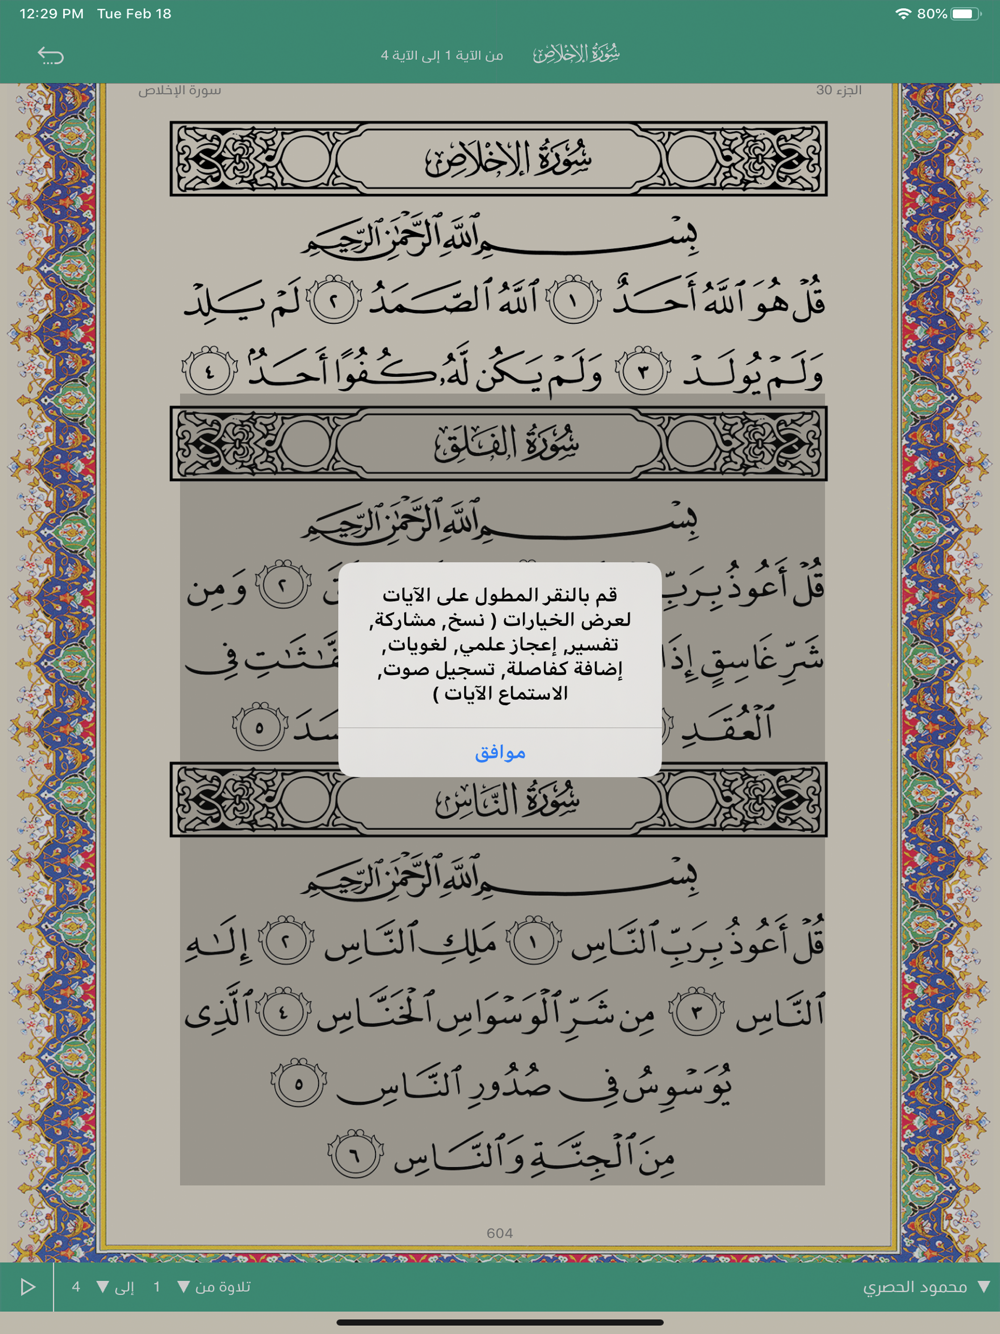 12:29 PM Tue Feb 18 80%
سُورَةُ الإِخْلَاصِ من الآية 1 إلى الآية 4
الجزء 30 سورة الإخلاص
سُورَةُ الإِخْلَاصِ
بِسْمِ ٱللَّهِ ٱلرَّحْمَٰنِ ٱلرَّحِيمِ
قُلْ هُوَ ٱللَّهُ أَحَدٌ ١ ٱللَّهُ ٱلصَّمَدُ ٢ لَمْ يَلِدْ
وَلَمْ يُولَدْ ٣ وَلَمْ يَكُن لَّهُۥ كُفُوًا أَحَدٌۢ ٤
سُورَةُ الفَلَقِ
بِسْمِ ٱللَّهِ ٱلرَّحْمَٰنِ ٱلرَّحِيمِ
قُلْ أَعُوذُ بِرَبِّ ٢ وَمِن
شَرِّ غَاسِقٍ إِذَا فَّٰثَٰتِ فِى
ٱلْعُقَدِ سَدَ ٥
قم بالنقر المطول على الآيات
لعرض الخيارات ( نسخ, مشاركة,
تفسير, إعجاز علمي, لغويات,
إضافة كفاصلة, تسجيل صوت,
الاستماع الآيات )
موافق
سُورَةُ النَّاسِ
بِسْمِ ٱللَّهِ ٱلرَّحْمَٰنِ ٱلرَّحِيمِ
قُلْ أَعُوذُ بِرَبِّ ٱلنَّاسِ ١ مَلِكِ ٱلنَّاسِ ٢ إِلَٰهِ
ٱلنَّاسِ ٣ مِن شَرِّ ٱلْوَسْوَاسِ ٱلْخَنَّاسِ ٤ ٱلَّذِى
يُوَسْوِسُ فِى صُدُورِ ٱلنَّاسِ ٥
مِنَ ٱلْجِنَّةِ وَٱلنَّاسِ ٦
604
محمود الحصري تلاوة من 1 إلى 4